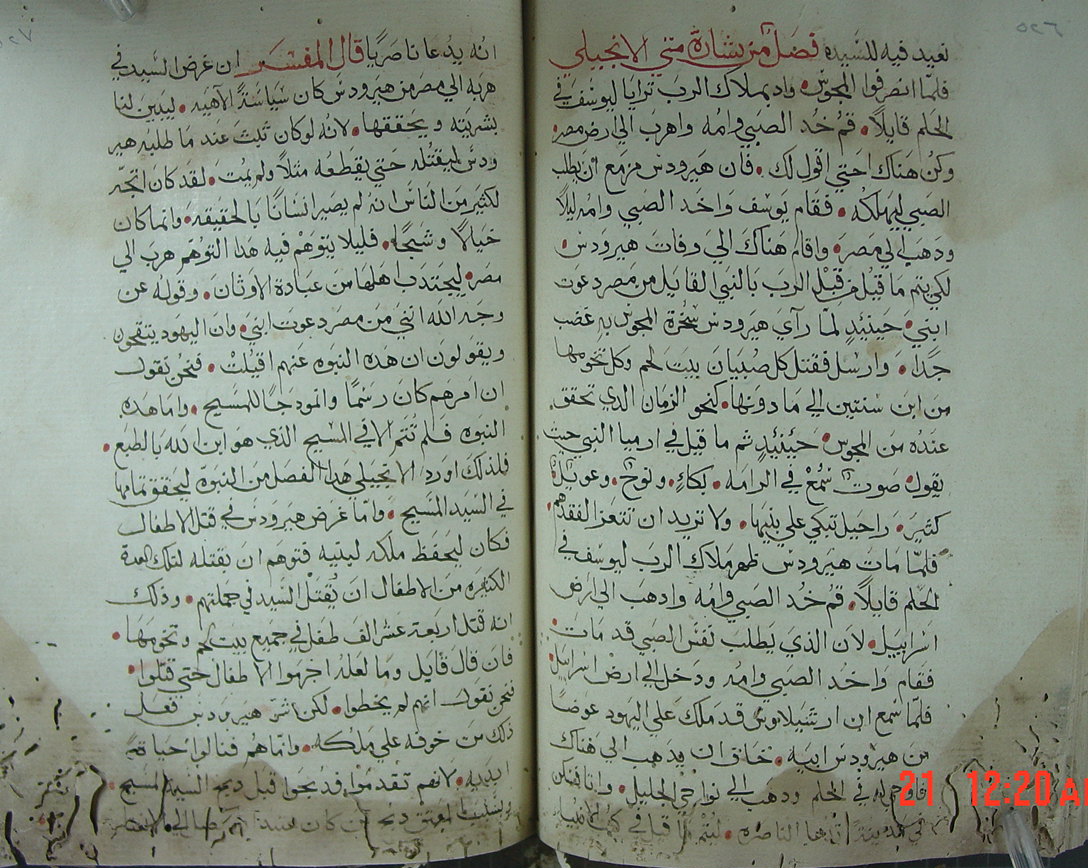 نعيد فيه للسيده فصل من بشارة متي الانجيلي
فلما انصرفوا المجوس واد بملاك الرب ترايا ليوسف في
الحلم قايلاً قم خد الصبي وامه واهرب الي ارض مصر
وكن هناك احتي اقول لك فان هيرودس مزمع ان يطلب
الصبي ليهلكه فقام يوسف واخد الصبي وامه ليلاً
ودهب الي مصر واقام هناك الي وفات هيرودس
لكي يتم ما قيل من قبل الرب بالنبي القايل من مصر دعوت
ابني حينيدٍ لما راي هيرودس سخرة المجوس به غضب
جداً وارسل فقتل كل صبيان بيت لحم وكل تخومها
من ابن سنتين الي ما دونها كنحو الزمان الدي تحقق
عنده من المجوس حينيدٍ تم ما قيل في ارميا النبي حيث
يقول صوت سمع في الرامه بكاءٍ ونوح وعويل
كتير راحيل تبكي علي بنيها ولا تريد ان تتعزا لفقدهم
فلما مات هيرودس ظهر ملاك الرب ليوسف في
الحلم قايلاً قم خد الصبي وامه وادهب الي ارض
اسراييل لان الدي يطلب نفس الصبي قد مات
فقام واخد الصبي وامه ودخل الي ارض اسراييل
فلما سمع ان ارشيلاوس قد ملك علي اليهود عوضاً
من هيرودس ابيه خاف ان يدهب الي هناك
في الحلم ودهب الي نواحي الجليل واتا فسكن
في مدينة تدعا الناصره ليتم ما قيل في
انه يدعا ناصريا قال المفسر ان غرض السيد في
هربه الي مصر من هيرودس كان سياسةً الاهيه ليبين لنا
بشريته ويحققها لانه لو كان تبت عند ما طلبه هير
ودس ليقتله حتي يقطعه متلاً ولم يمت لقد كان اتجه
لكتير من الناس انه لم يصير انسانًا بالحقيقه وانما كان
خيالاً وشبحًا فليلا يتوهم فيه هدا التوهم هرب الي
مصر ليجتدب اهلها من عبادة الاوتان وقوله عن
وجه الله انني من مصر دعوت ابني وان اليهود يتقحون
ويقولون ان هده النبوه عنهم اقيلت فنحن نقول
ان امرهم كان رسمًا وانمودجًا للمسيح واما هده
النبوه فلم تتم الا في المسيح الدي هو ابن الله بالطبع
فلدلك اورد الانجيلي هدا الفصل من النبوه ليحقق تمامها
في السيد المسيح واما غرض هيرودس في قتل الاطفال
فكان ليحفظ ملكه لبنيه فتوهم ان بقتله لتلك العدة
الكتيره من الاطفال ان يُقتل السيد في جملتهم ودلك
انه قتل اربعة عشر الف طفل في جميع بيت لحم وتخومها
فان قال قايل وما لعله اجرموا الاطفال حتي قتلوا
فنحن نقول انهم لم يخطوا لكن شر هيرودس فعل
دلك من خوفه علي ملكه واما هم فنالوا حياة
ابديه لانهم تقدموا فدبحوا قبل دبح السيد المسيح
21 12:20 A